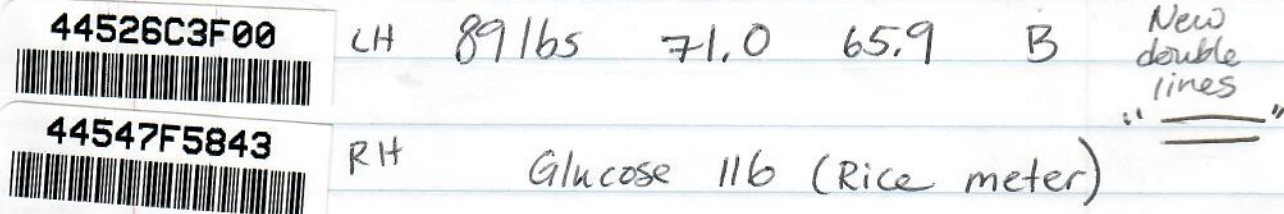 44526C3F00 LH 89 lbs 71.0 65.9 B New
double
lines
" "
44547F5843 RH Glucose 116 (Rice meter)